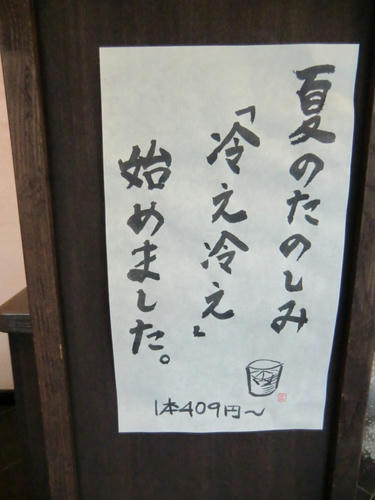 夏のたのしみ
「冷え冷え」
始めました。
1本409円~